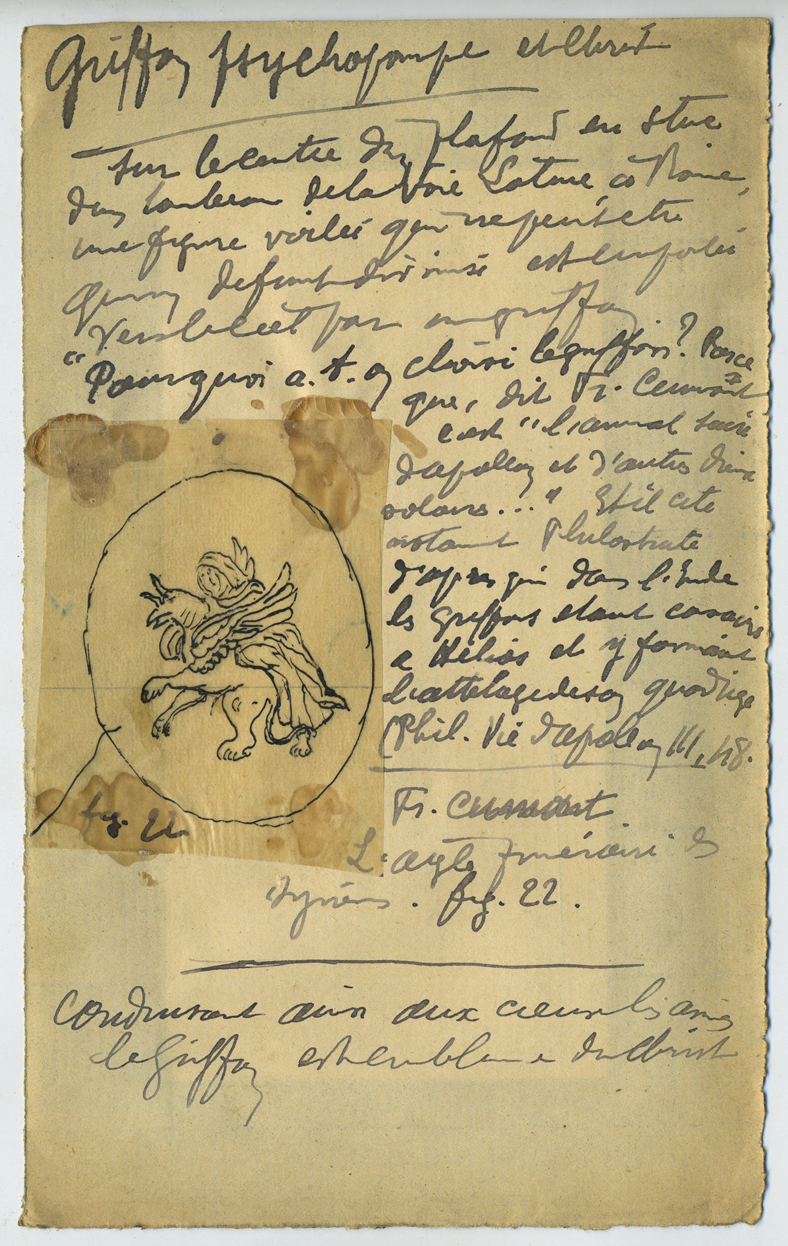 Griffon psychopompe et Christ
Sur le centre du plafond en stuc
d'un tombeau de la Voie Latine, à Rome,
une figure voilée qui ne peut être
qu'un défunt divinisé est emportée
vers le ciel par un griffon.
"Pourquoi a-t-on choisi le griffon? Parce
que, dit Fr. Cumont,
c'est "l'animal sacré
d'Apollon et d'autres dieux
solaires..." Et il cite
notamment Philostrate
d'après qui dans l'Inde
les griffons étant consacrés
à Hélios et y formant
l'attelage de son quadrige
(Phil. Vie d'Apollon III, 48.
fig. 22
Fr. Cumont
L'aigle funéraire des
Syriens. fig. 22.
Conduisant ainsi aux cieux les âmes
le Griffon est emblème du Christ